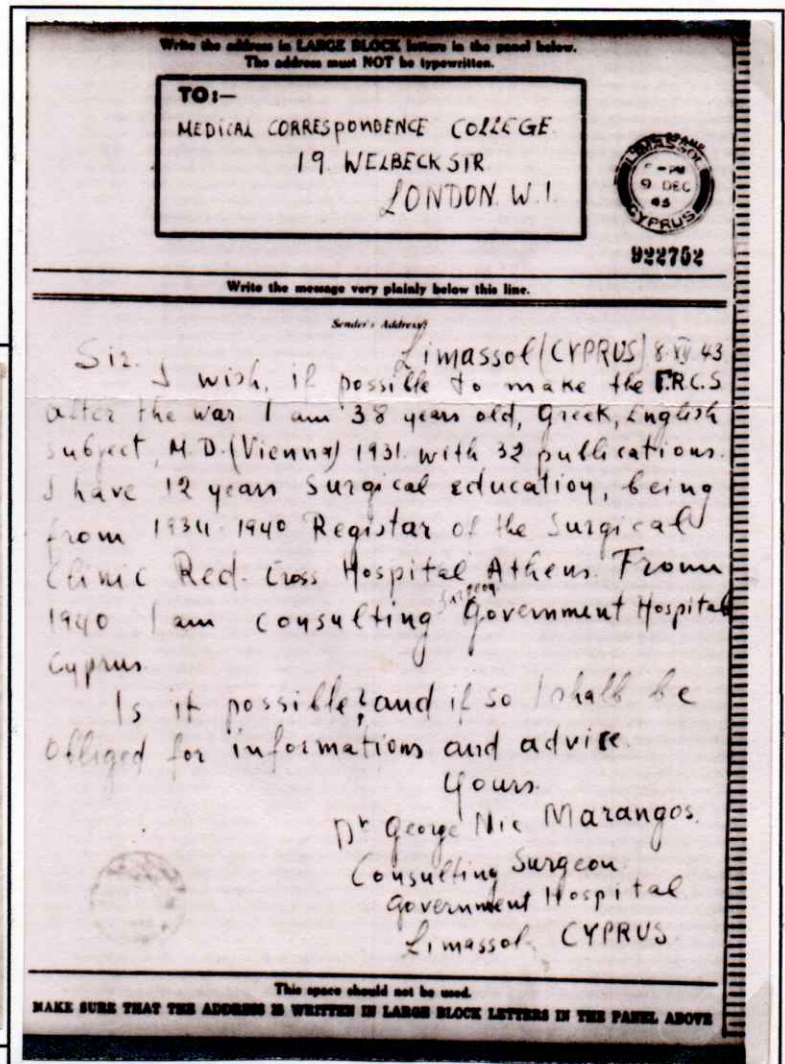 Write the address in LARGE BLOCK letters in the panel below.
The address must NOT be typewritten.
TO:—
MEDICAL CORRESPONDENCE COLLEGE
19. WELBECK STR.
LONDON. W. 1.
LIMASSOL
PM
9 DEC
CYPRUS
922752
Write the message very plainly below this line.
Sender's Address:
Limassol (CYPRUS) 8 XII 43
Sir.
I wish, if possible to make the F.R.C.S
after the war. I am 38 years old, Greek, English
subject, M.D. (Vienna) 1931. with 32 publications.
I have 12 years Surgical education, being
from 1934-1940 Registar of the Surgical
Clinic Red-Cross Hospital Athens. From
1940 I am consulting surgeon Government Hospital
Cyprus.
Is it possible? and if so I shall be
obliged for informations and advice.
Yours.
Dr George Nic Marangos.
Consulting Surgeon
Government Hospital
Limassol CYPRUS.
This space should not be used.
MAKE SURE THAT THE ADDRESS IS WRITTEN IN LARGE BLOCK LETTERS IN THE PANEL ABOVE